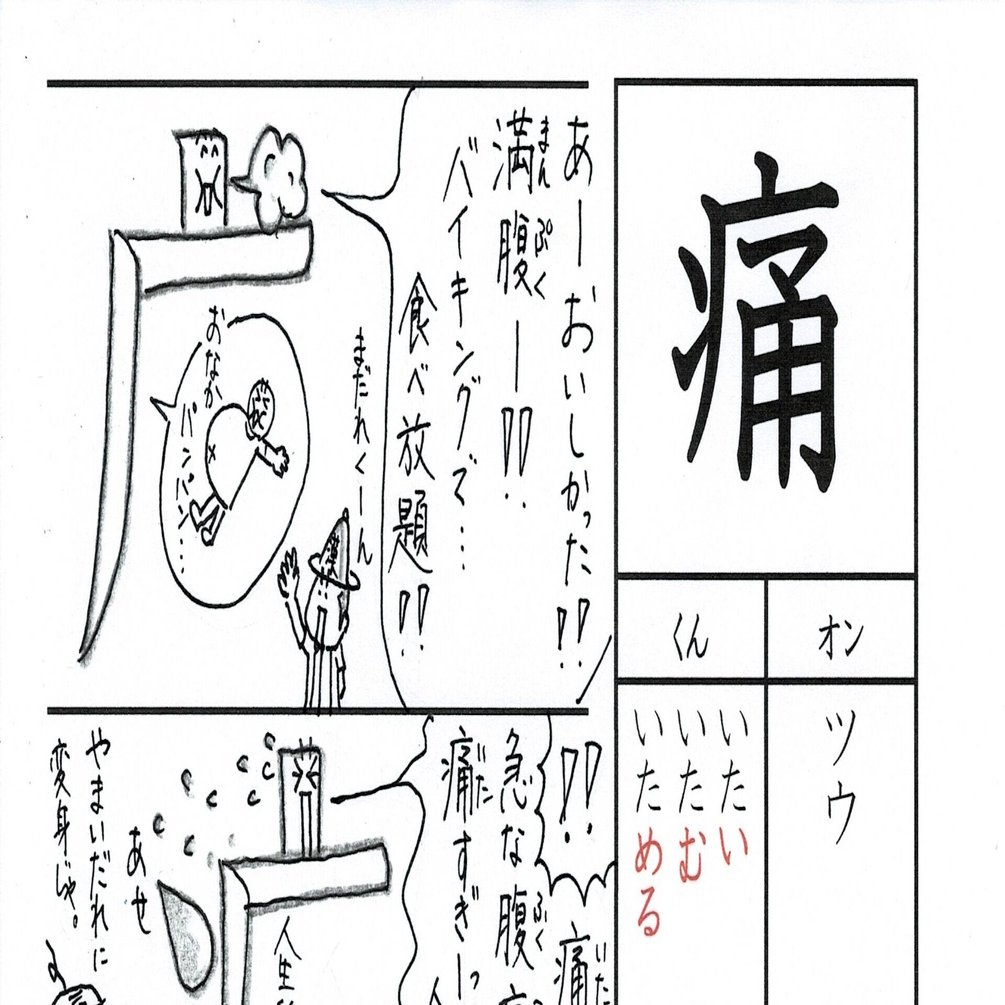 痛
オン
くん
ツウ
いたい
いたむ
いためる
あーおいしかった!!
満腹ー!!
まんぷく
バイキングで…
食べ放題!!
まだれくーん
おなか
パンパン…
!!
痛
いた
急な腹
ふく
痛すぎーっ
だた
人生
あせ
やまいだれに
変身じゃ。